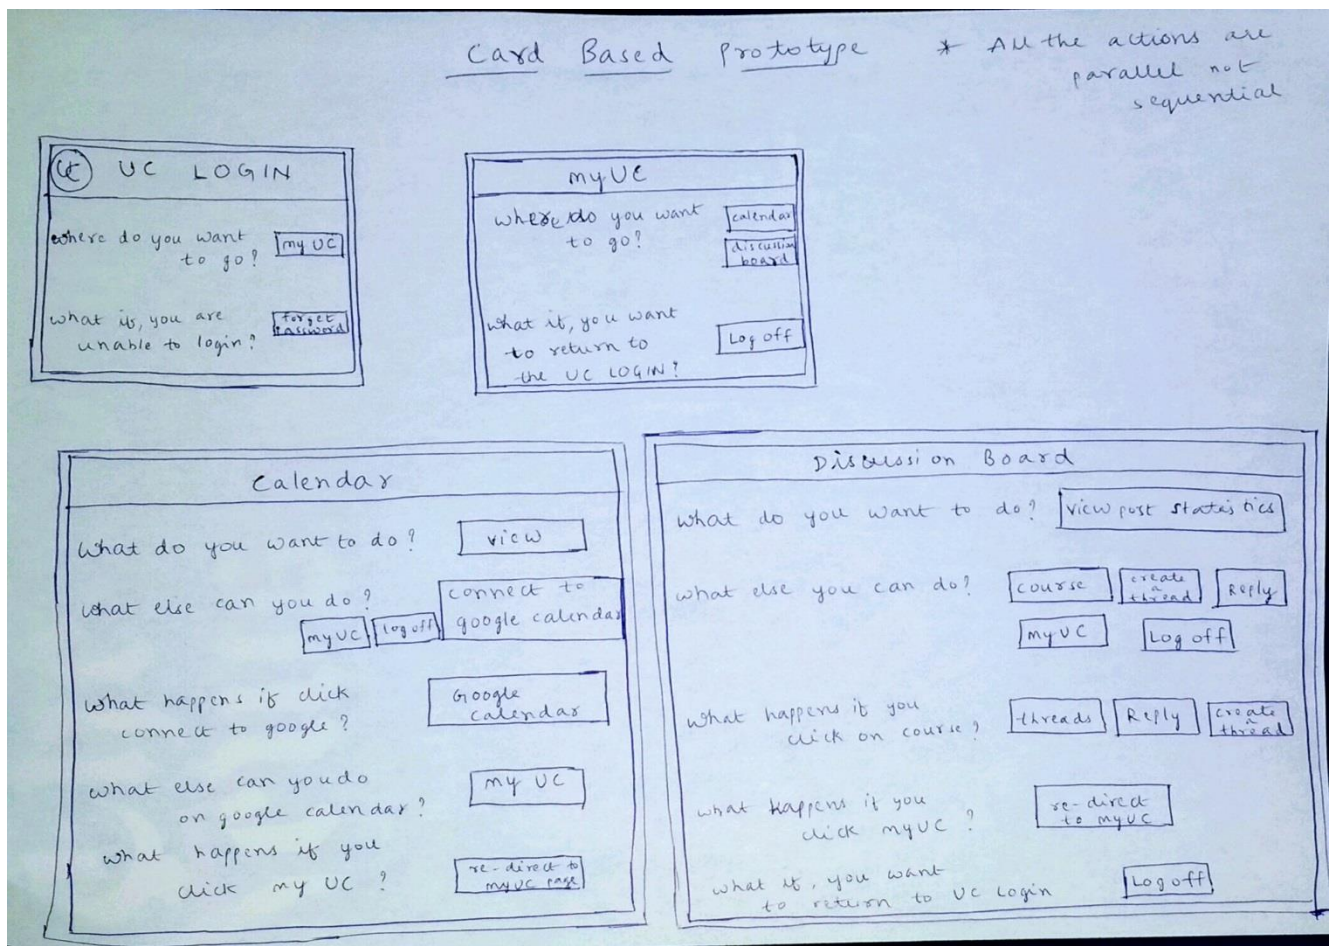 Card Based Prototype
* All the actions are
parallel not
sequential
UC UC LOGIN
where do you want
to go?
my UC
what if, you are
unable to login?
forget
password
my UC
where do you want
to go?
calendar
discussion
board
what if, you want
to return to
the UC LOGIN?
Log off
Calendar
What do you want to do?
view
what else can you do?
my UC
log off
connect to
google calendar
what happens if click
connect to google?
Google
calendar
what else can you do
on google calendar?
my UC
what happens if you
click my UC?
re-direct to
my UC page
Discussion Board
what do you want to do?
view post statistics
what else you can do?
course
create
a
thread
Reply
my UC
Log off
what happens if you
click on course?
threads
Reply
create
a
thread
what happens if you
click myUC?
re-direct
to myUC
what if, you want
to return to UC Login
Log off